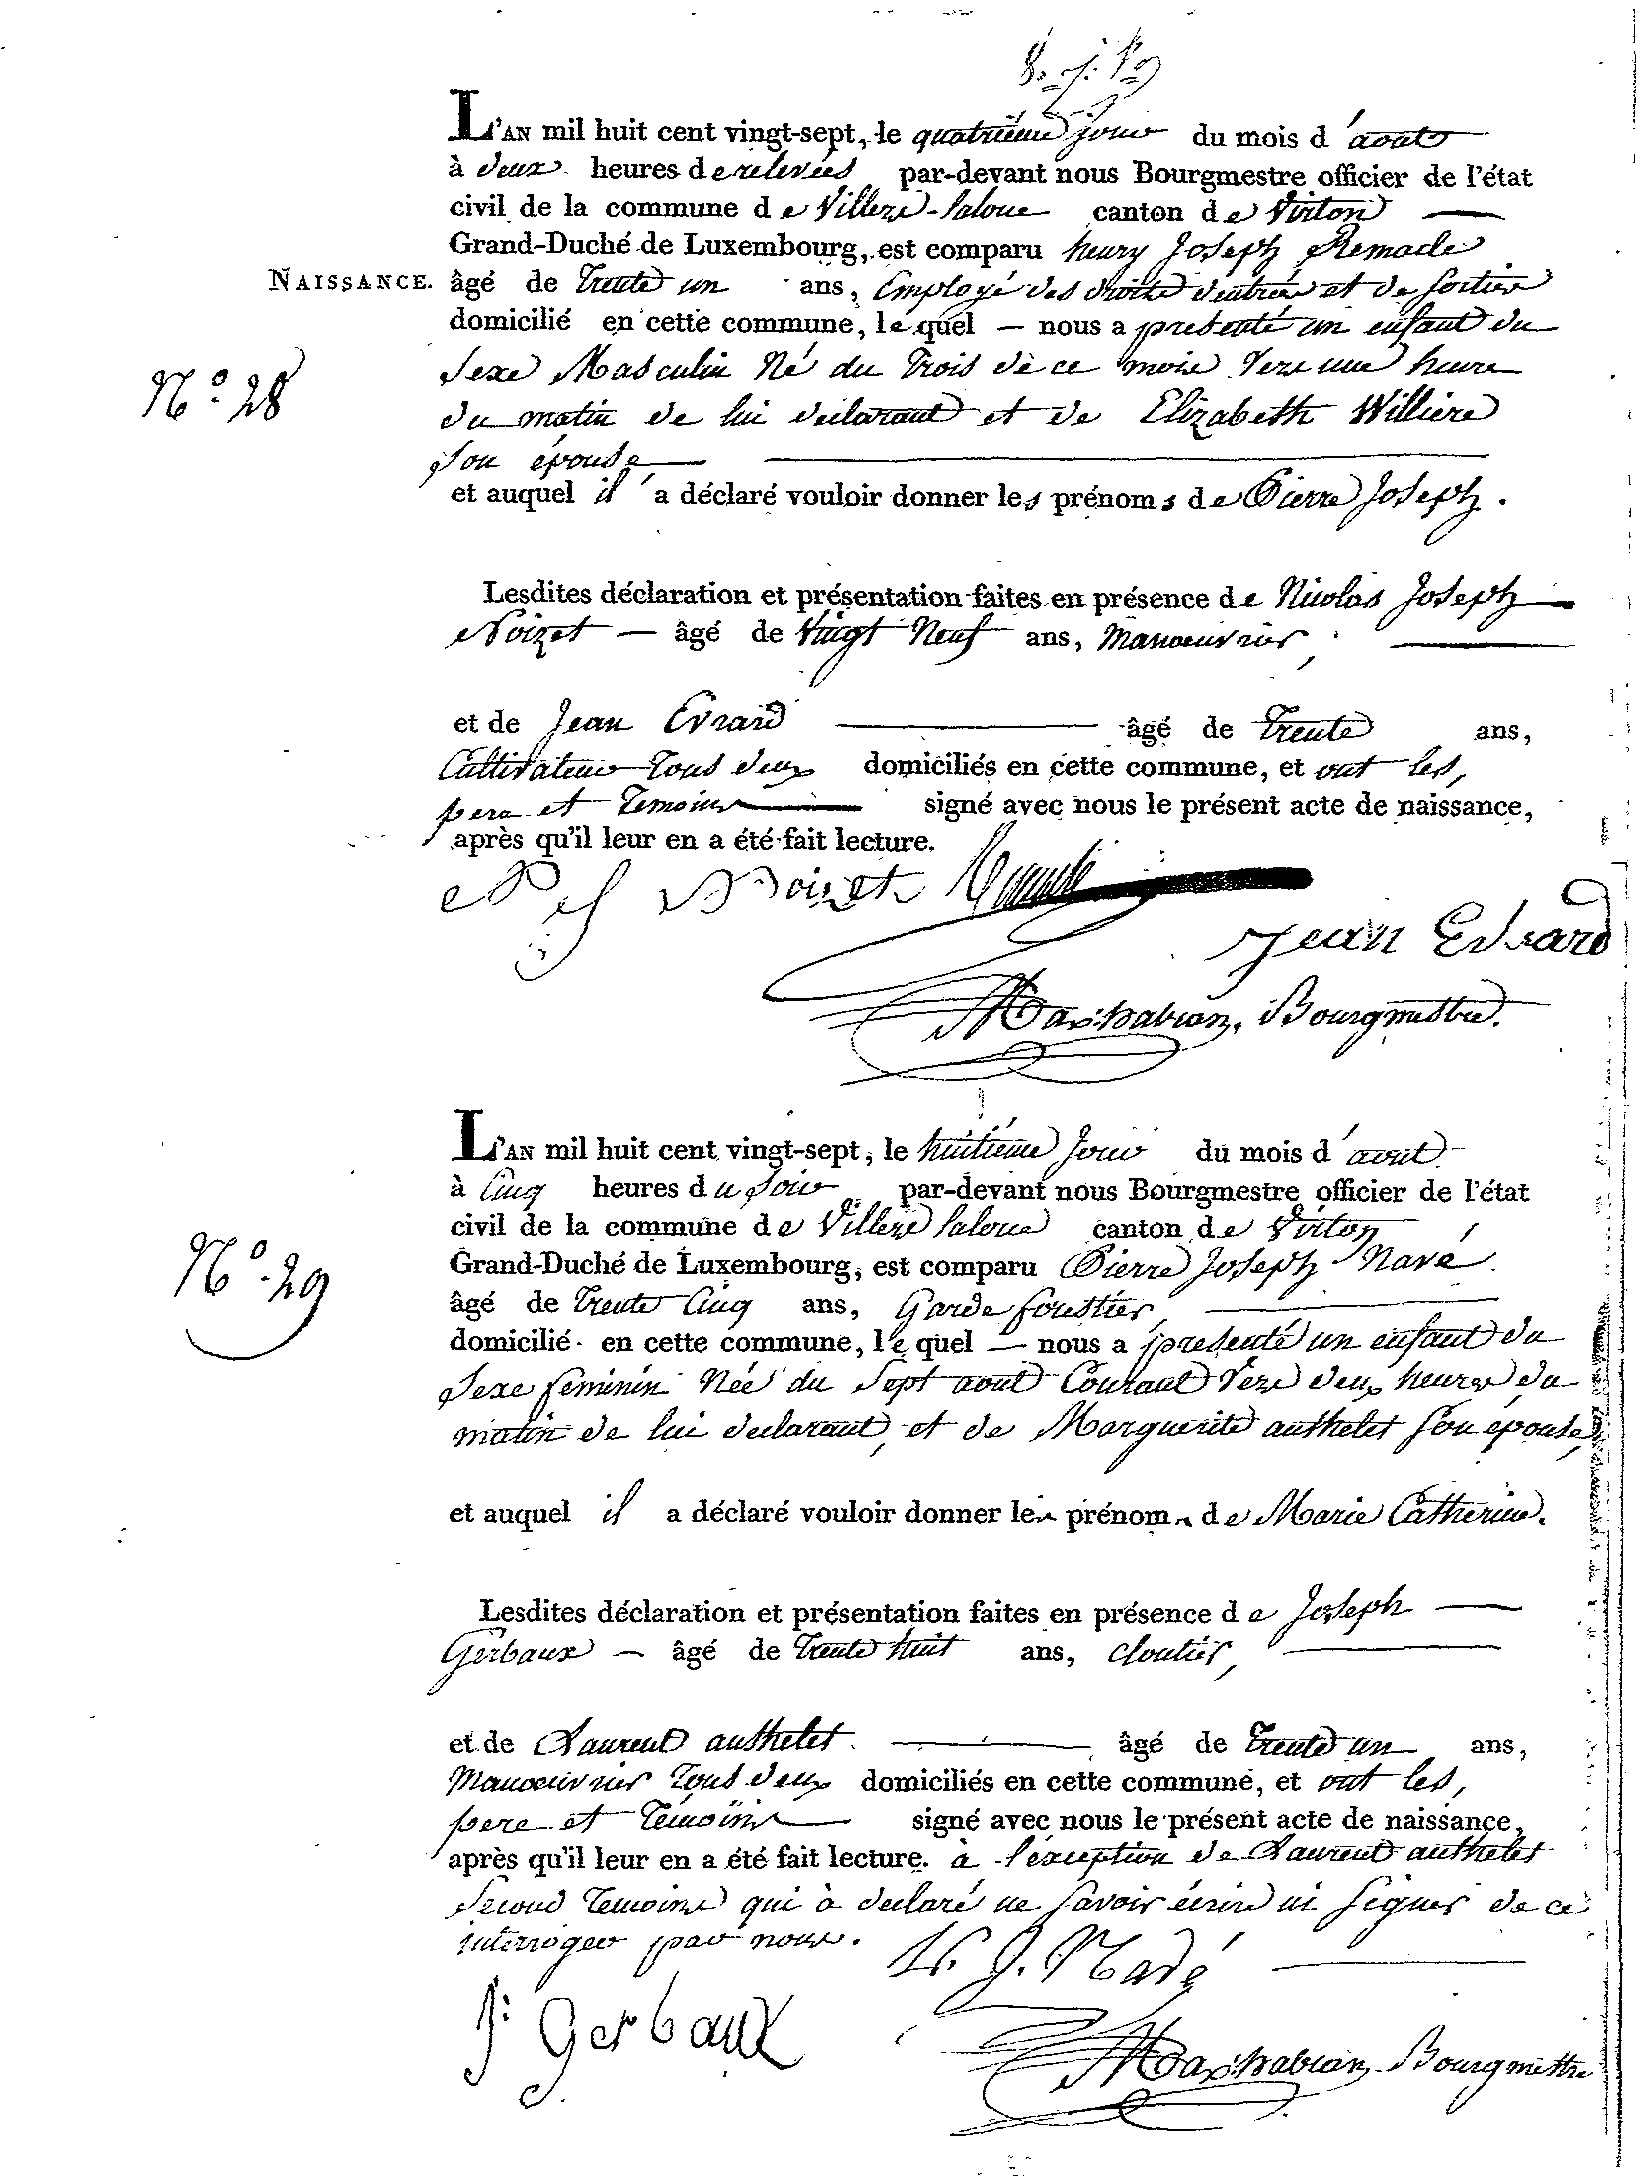 L'AN mil huit cent vingt-sept, le quatrième jour du mois d'aout
à deux heures de relevées par-devant nous Bourgmestre officier de l'état
civil de la commune de Villers-laloue canton de Virton
Grand-Duché de Luxembourg, est comparu henry Joseph Remacle
NAISSANCE. âgé de Trente un ans, Employé des droits d'entrée et de sortier
domicilié en cette commune, lequel — nous a presenté un enfant du
N° 28
sexe Masculin Né du Trois de ce mois vers une heure
du matin de lui declarant et de Elizabeth Willière
son épouse
et auquel il a déclaré vouloir donner les prénoms de Pierre Joseph.
Lesdites déclaration et présentation faites en présence de Nicolas Joseph
Noizet — âgé de Vingt Neuf ans, Manoeuvrier,
et de Jean Evrard âgé de Trente ans,
Cultivateur Tous deux domiciliés en cette commune, et ont les,
pere et Temoins signé avec nous le présent acte de naissance,
après qu'il leur en a été fait lecture.
Noizet
Jean Evrard
Bourgmestre.
L'AN mil huit cent vingt-sept, le huitième jour du mois d'aout
à Cinq heures du soir par-devant nous Bourgmestre officier de l'état
civil de la commune de Villers laloue canton de Virton
N° 29
Grand-Duché de Luxembourg, est comparu Pierre Joseph Navé
âgé de Trente Cinq ans, Garde forestier,
domicilié en cette commune, lequel — nous a presenté un enfant du
sexe feminin Née du Sept aout Courant vers deux heures du
matin de lui declarant, et de Marguerite authelet son épouse,
et auquel il a déclaré vouloir donner les prénoms de Marie Catherine.
Lesdites déclaration et présentation faites en présence de Joseph —
Gerbaux — âgé de Trente huit ans, cloutier,
et de Laurent authelet âgé de Trente un ans,
Manoeuvrier Tous deux domiciliés en cette commune, et ont les,
pere et Témoins signé avec nous le présent acte de naissance,
après qu'il leur en a été fait lecture. à l'exception de Laurent authelet
second Temoins qui à declaré ne savoir écrire ni signer de ce
interroger par nous.
P. J. Navé
J: Gerbaux
Bourgmestre